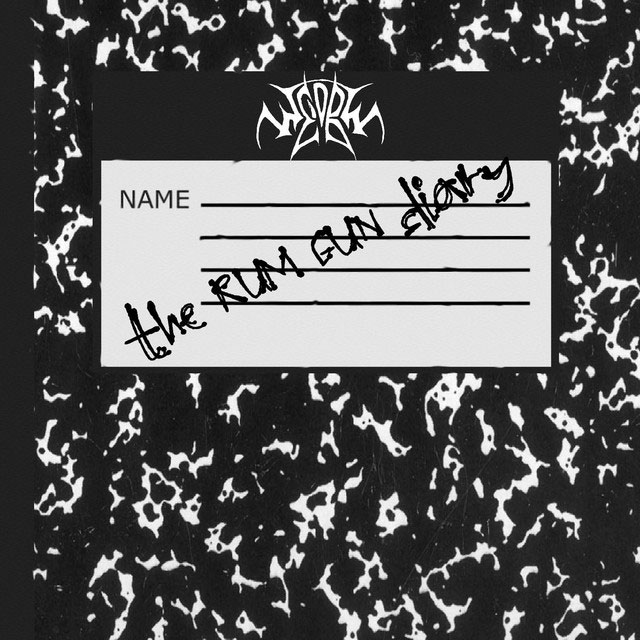 NAME
the RUM GUN diary